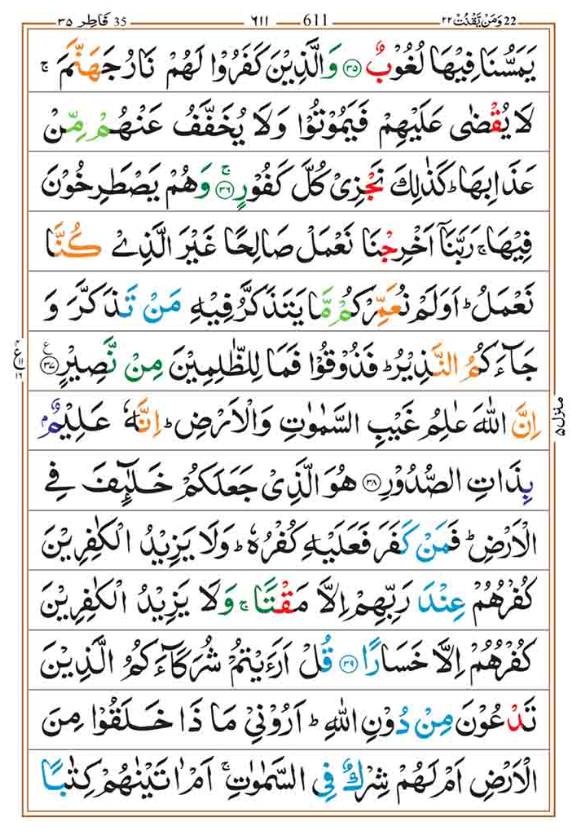 35 فَاطِر ٣٥ — ٦١١ — 611 — 22 وَمَنْ يَّقْنُتْ ٢٢
يَمَسُّنَا فِيْهَا لُغُوْبٌ ﴿٣٥﴾ وَالَّذِيْنَ كَفَرُوْا لَهُمْ نَارُ جَهَنَّمَ ۚ
لَا يُقْضٰى عَلَيْهِمْ فَيَمُوْتُوْا وَلَا يُخَفَّفُ عَنْهُمْ مِّنْ
عَذَابِهَا ؕ كَذٰلِكَ نَجْزِىْ كُلَّ كَفُوْرٍ ۚ ﴿٣٦﴾ وَهُمْ يَصْطَرِخُوْنَ
فِيْهَا ۚ رَبَّنَاۤ اَخْرِجْنَا نَعْمَلْ صَالِحًا غَيْرَ الَّذِىْ كُنَّا
نَعْمَلُ ؕ اَوَلَمْ نُعَمِّرْكُمْ مَّا يَتَذَكَّرُ فِيْهِ مَنْ تَذَكَّرَ وَ
جَآءَكُمُ النَّذِيْرُ ؕ فَذُوْقُوْا فَمَا لِلظّٰلِمِيْنَ مِنْ نَّصِيْرٍ ﴿٣٧﴾ ع
اِنَّ اللّٰهَ عٰلِمُ غَيْبِ السَّمٰوٰتِ وَالْاَرْضِ ؕ اِنَّهٗ عَلِيْمٌۢ
بِذَاتِ الصُّدُوْرِ ﴿٣٨﴾ هُوَ الَّذِىْ جَعَلَكُمْ خَلٰٓئِفَ فِى
الْاَرْضِ ؕ فَمَنْ كَفَرَ فَعَلَيْهِ كُفْرُهٗ ؕ وَلَا يَزِيْدُ الْكٰفِرِيْنَ
كُفْرُهُمْ عِنْدَ رَبِّهِمْ اِلَّا مَقْتًا ۚ وَلَا يَزِيْدُ الْكٰفِرِيْنَ
كُفْرُهُمْ اِلَّا خَسَارًا ﴿٣٩﴾ قُلْ اَرَءَيْتُمْ شُرَكَآءَكُمُ الَّذِيْنَ
تَدْعُوْنَ مِنْ دُوْنِ اللّٰهِ ؕ اَرُوْنِىْ مَا ذَا خَلَقُوْا مِنَ
الْاَرْضِ اَمْ لَهُمْ شِرْكٌ فِى السَّمٰوٰتِ ۚ اَمْ اٰتَيْنٰهُمْ كِتٰبًا
منزل ٥